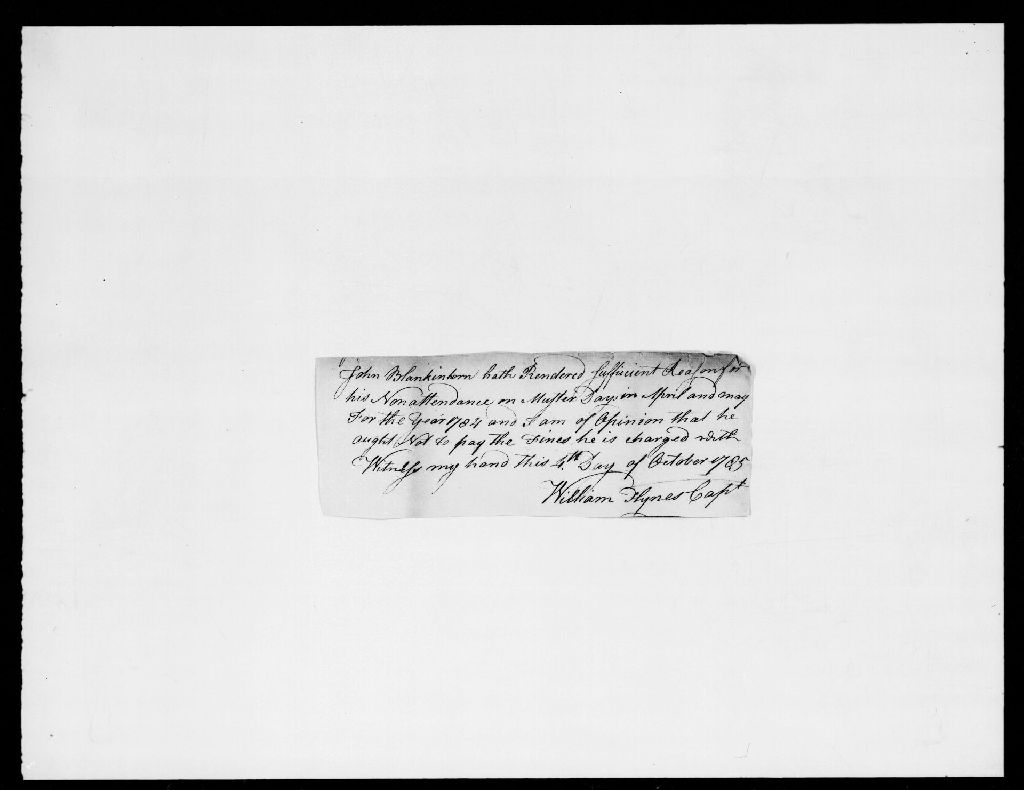 John Blankinhorn hath Rendered Suffucient Reason for
his Nonattendance on Muster Day in April and may
For the Year 1784 and I am of Opinion that he
aught Not to pay the Fines he is charged with
Witness my hand this 4th Day of October 1785
William Hynes Capt